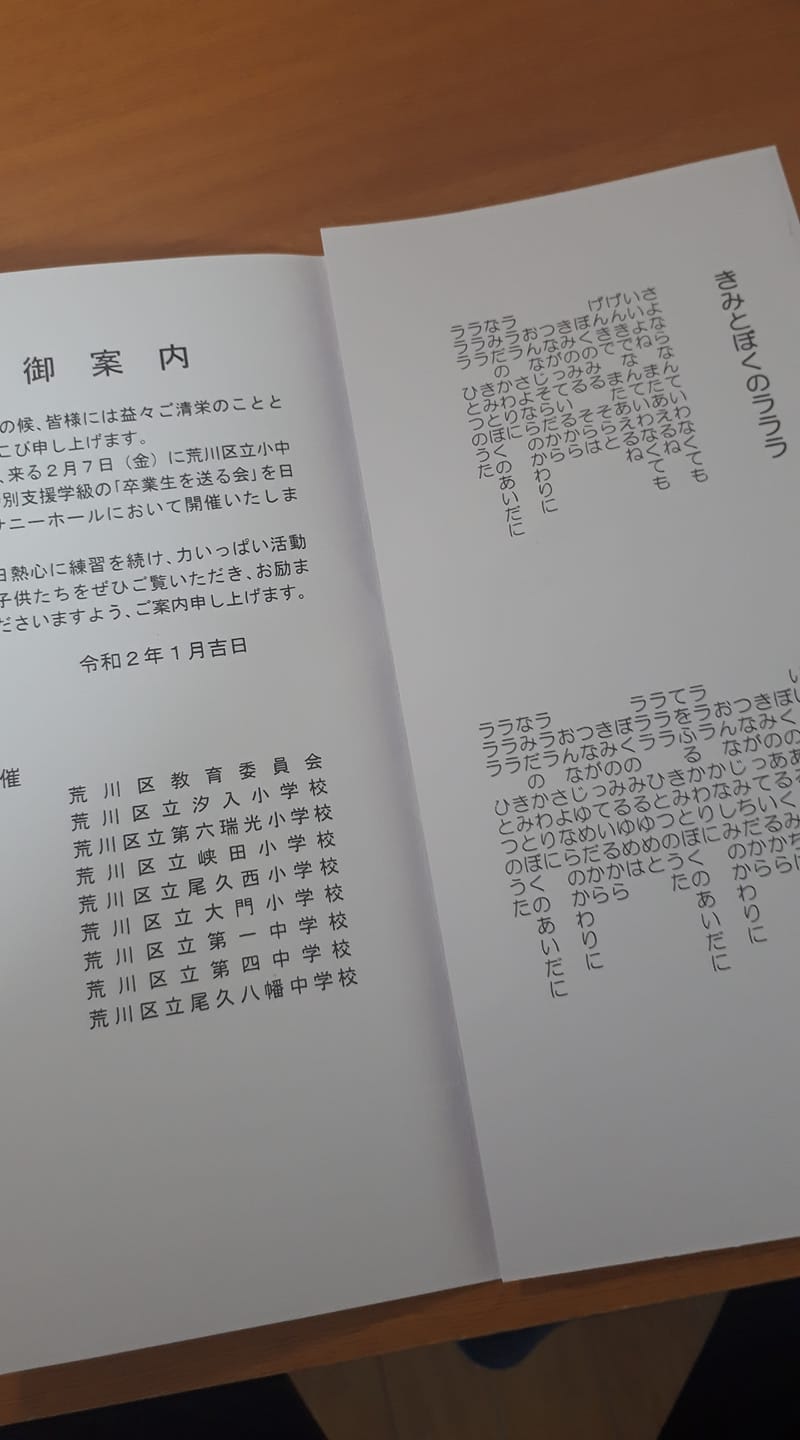 御案内
の候、皆様には益々ご清栄のことと
こび申し上げます。
、来る２月７日（金）に荒川区立小中
別支援学級の「卒業生を送る会」を日
サニーホールにおいて開催いたしま
日熱心に練習を続け、力いっぱい活動
子供たちをぜひご覧いただき、お励ま
ださいますよう、ご案内申し上げます。
令和２年１月吉日
催
荒川区教育委員会
荒川区立汐入小学校
荒川区立第六瑞光小学校
荒川区立峡田小学校
荒川区立尾久西小学校
荒川区立大門小学校
荒川区立第一中学校
荒川区立第四中学校
荒川区立尾久八幡中学校
きみとぼくのラララ
さよならなんていわなくても
いいよね　またあえるね
げんきでなんていわなくても
げんきで　またあえるね
ぼくのみる　そらと
きみのみる　そらは
つながっているから
おんなじそらだから
ラララ　さよならのかわりに
なみだのかわりに
ラララ　きみとぼくのあいだに
ラララ　ひとつのうた
きみのあ
つながっているから
おんなじみちだから
ララ　かなしみのかわりに
てをふるかわりに
ラララ　きみとぼくのあいだに
ラララ　ひとつのうた
ぼくのみるゆめと
きみのみるゆめは
つながっているから
おんなじゆめだから
ラララ　さよならのかわりに
なみだのかわりに
ラララ　きみとぼくのあいだに
ラララ　ひとつのうた